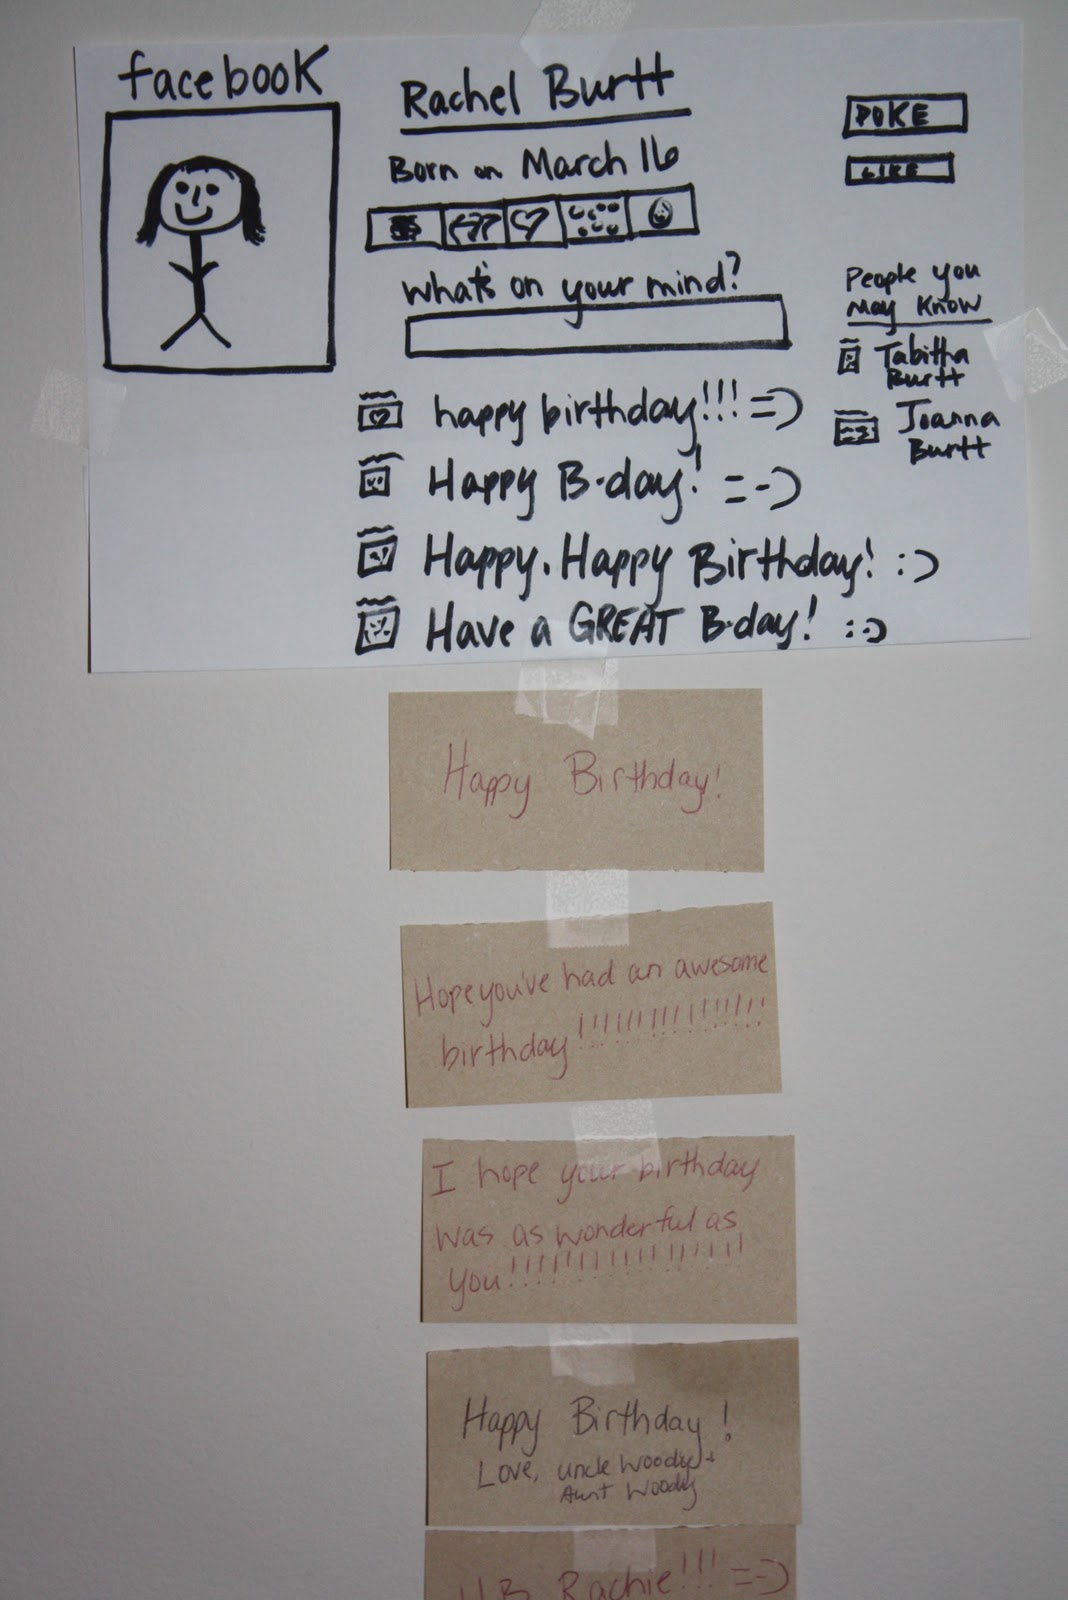 facebook
Rachel Burtt
Born on March 16
What's on your mind?
happy birthday!!! =)
Happy B-day! =-)
Happy, Happy Birthday! :)
Have a GREAT B-day! :-)
POKE
LIKE
People you
May Know
Tabitha
Burtt
Joanna
Burtt
Happy Birthday!
Hope you've had an awesome
birthday!!!!!!!!!!!!!!!!
I hope your birthday
was as wonderful as
you!!!!!!!!!!!!!!!!
Happy Birthday!
Love, uncle Woody +
Aunt Woody
H.B. Rachie!!! =-)